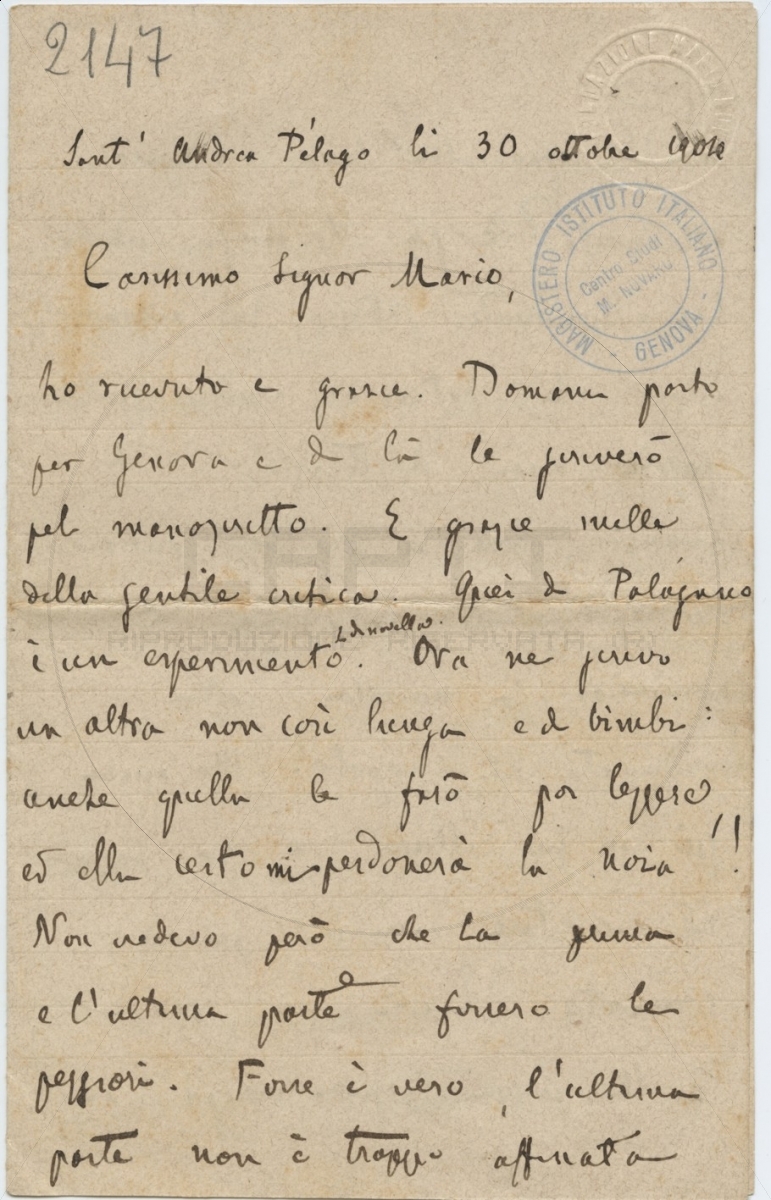 2147
Sant' Andrea Pélago li 30 ottobre
MAGISTERO ISTITUTO ITALIANO - GENOVA -
Centro Studi
M. NOVARO
Carissimo Signor Mario,
ho ricevuto e grazie. Domani parto
per Genova e di là le scriverò
pel manoscritto. E grazie mille
della gentile critica. Quei di Palágano
è un esperimento. Ora ne scrivo
di novella.
un altra non così lunga e di bimbi:
anche quella le farò poi leggere
ed ella certo mi perdonerà la noia!!
Non vedevo però che la prima
e l'ultima parte fossero le
peggiori. Forse è vero, l'ultima
parte non è troppo affinata